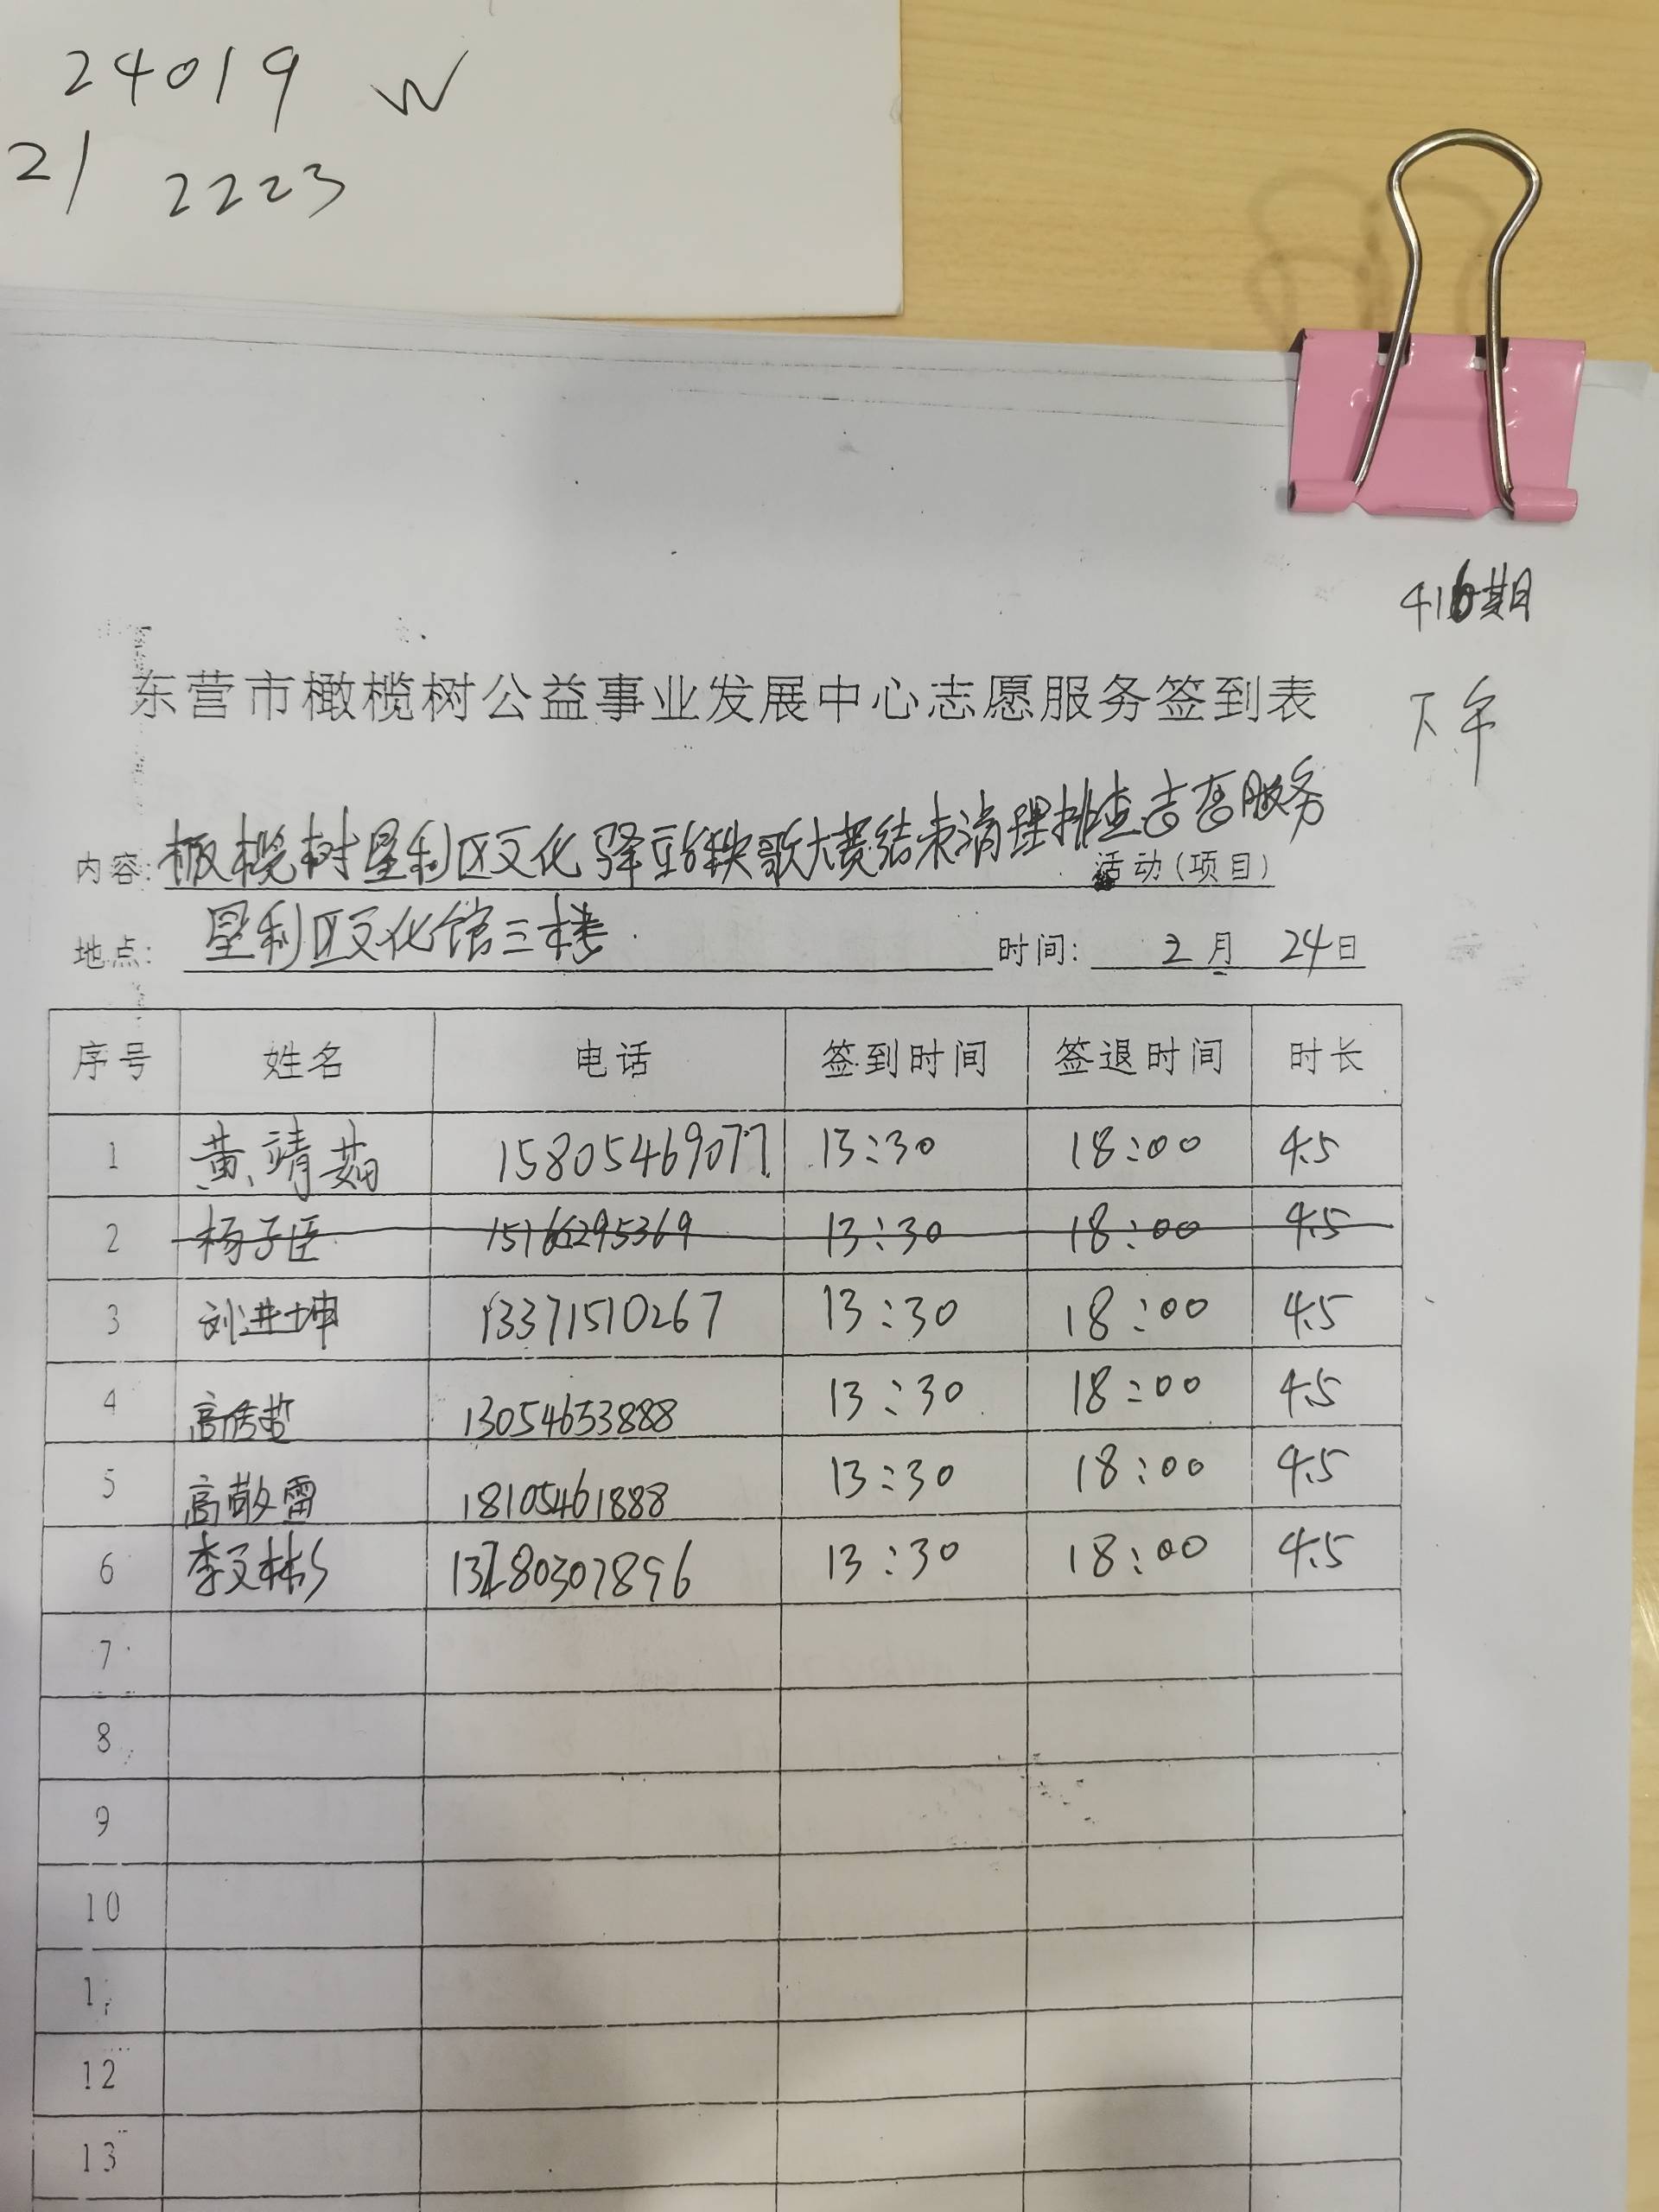 24019 W
21 2223
416期
东营市橄榄树公益事业发展中心志愿服务签到表
下午
内容: 橄榄树垦利区文化驿站秧歌大赛结束清理排查志愿服务 活动(项目)
地点: 垦利区文化馆三楼 时间: 2月 24日
序号 姓名 电话 签到时间 签退时间 时长
1 黄靖茹 15805469077 13:30 18:00 4.5
2 杨子臣 15166295369 13:30 18:00 4.5
3 刘进坤 13371510267 13:30 18:00 4.5
4 高秀哲 13054653888 13:30 18:00 4.5
5 高敬雷 18105461888 13:30 18:00 4.5
6 李文彬 13280307896 13:30 18:00 4.5
7
8
9
10
12
13